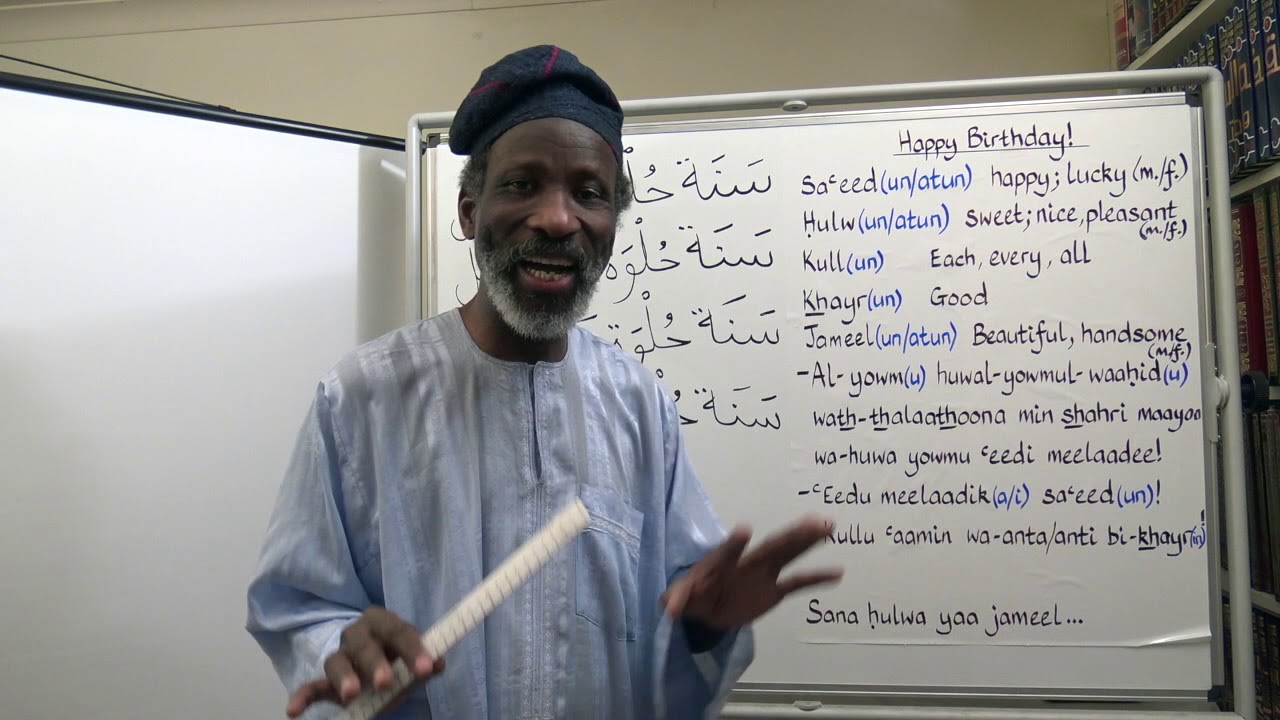 Happy Birthday!
Saʿeed(un/atun) happy; lucky (m./f.)
Ḥulw(un/atun) sweet; nice, pleasant (m./f.)
Kull(un) Each, every, all
Khayr(un) Good
Jameel(un/atun) Beautiful, handsome (m./f.)
-Al-yowm(u) huwal-yowmul-waaḥid(u)
wath-thalaathoona min shahri maayoo
wa-huwa yowmu ʿeedi meelaadee!
-ʿEedu meelaadik(a/i) saʿeed(un)!
Kullu ʿaamin wa-anta/anti bi-khayr(in)!
Sana ḥulwa yaa jameel...
سَنَة
سَنَة حُلْوَة
سَنَة حُلْوَة
سَنَة